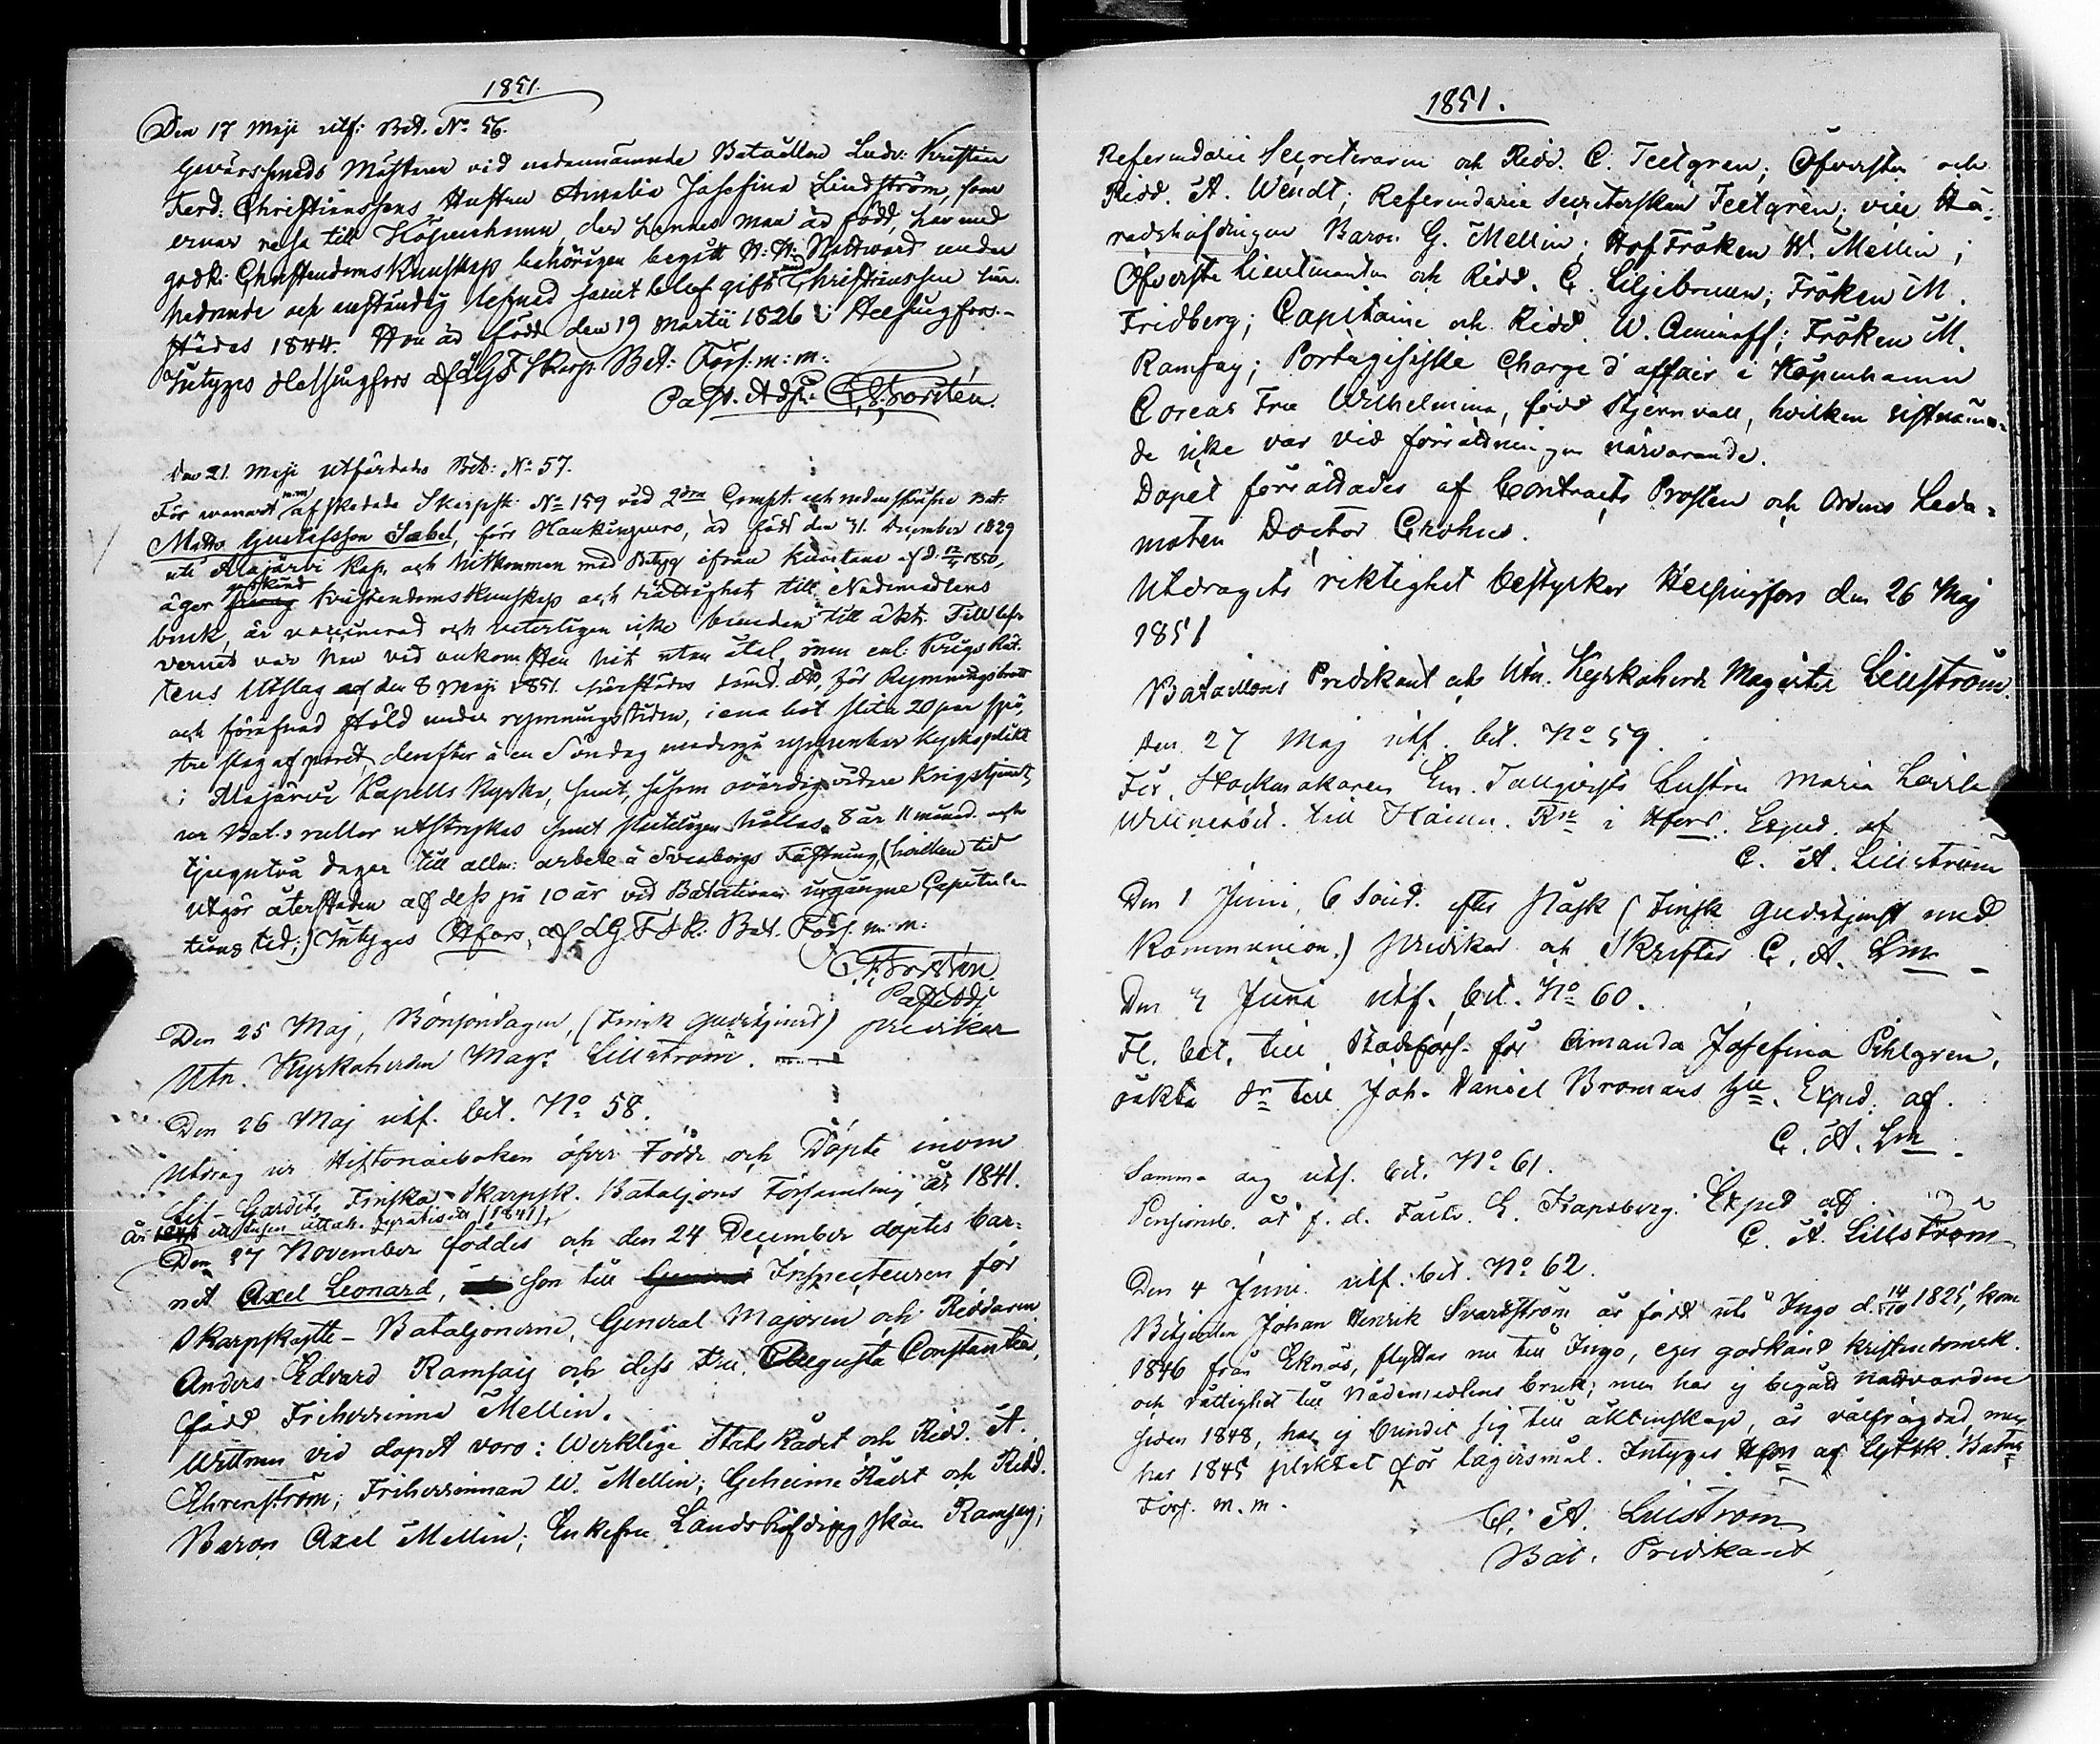 1851.
Den 17 Maji utf: Bet. No 56.
Gevärssmeds Mästaren vid nedannämnde Bataillon Ludv: Kristian
Ferd: Christianssens Hustru Amalia Josefina Lindström, som
ernar resa till Köpenhamn, der hennes man är född, har med
godk: Christendoms Kunskap behörigen begått H: H: Nattvard under
hedrande och anständig lefnad samt blef gift med Christianssen här-
städes 1844. Hon är född den 19 Martii 1826 i Helsingfors.-
Intygas Helsingfors af LGFSkarp. Bat: Förs: m: m:
Past. Adj: Forstén.
Den 21 Maji utfärdades Bet: No 57.
För wanart m.m afskedade Skarpsk. No 159 vid 2dra Comp: och nedanskrifne Bat.
Matts Gustafsson Sabel, förr Haukinguoro, är född den 31 December 1829
uti Alajärvi Kap. och hitkommen med Betyg ifrån kusitane af d. 1850,
äger godkänd Kristendoms Kunskap och rättighet till Nådemedlens
bruk, är vaccinerad och veterligen icke bunden till äkt. Till lef-
vernet var han vid ankomsten hit utan åtal, men enl: Krigs Rät-
tens Utslag af den 8 Maji 1851 härstädes dömd att, för Rymningsbrott
och föröfvad stöld under rymningstiden, i ena bot slita 20 par spö,
tre slag af paret, derefter å en Söndag undergå uppenbar kyrkoplikt
i Alajärvi Kapells Kyrka, samt, såsom ovärdig vidare Krigstjenst,
ur Bat:s rullor utstrykas samt slutligen hållas 8 år 11 månad. och
tjugutvå dagar till allm: arbete å Sveaborgs Fästning, (hvilken tid
utgör återstoden af dess på 10 år vid Bataillonen ingångne Capitula-
tions tid;) Intyges Hfors, af LGFSk: Bat. Förs. m: m:
Forstén
Past Adj
Den 25 Maj, Bönsöndagen, (Finsk gudstjenst) predikar
Utn. Kyrkoherden Mag: Lillström.
Den 26 Maj utf. bet. No 58.
Utdrag ur Historiaeboken öfver Födde och Döpte inom
Lif-Gardets Finska Skarpsk. Bataljons Församling år 1841.
År ett tusen åttah. fyratioett (1841)
Den 27 November föddes och den 24 December döptes bar-
net Axel Leonard, son till Inspecteuren för
Skarpskytte-Bataljonerne, General Majoren och Riddaren
Anders Edvard Ramsay och dess Fru Augusta Constantia,
född Friherrinna Mellin.
Wittnen vid dopet voro: Werklige Stats Rådet och Ridd. A.
Ehrenström; Friherrinnan W. Mellin; Geheime Rådet och Ridd.
Baron Axel Mellin; Enkefru Landshöfdingskan Ramsay;
1851.
Referendarie Secreteraren och Ridd. C. Teetgren; Öfversten och
Ridd. A. Wendt; Referendarie Secreterskan Teetgren; vice Hä-
radshöfdingen Baron G. Mellin; Hof Fröken W. Mellin;
Öfverste Lieutnanten och Ridd. C. Liljebrunn; Fröken M.
Fridberg; Capitaine och Ridd. W. Aminoff; Fröken M.
Ramsay; Portugisiske Charge d'affair i Köpenhamn
Coreas Fru Wilhelmina, född Stjernvall, hvilken sistnämn-
de icke var vid förrättningen närvarande.
Dopet förrättades af Contracts Prosten och Ordens Leda-
moten Doctor Crohns.
Utdragets riktighet bestyrker Helsingfors den 26 Maj
1851
Bataillons Predikant och Utn. Kyrkoherde Magister Lillström.
Den 27 Maj utf. bet. No 59.
För Stockmakaren Em. Tallqvists hustru Maria Lovisa
till i Hfors. Exped. af
C. A. Lillström
Den 1 Juni, 6 Sönd. efter Påsk (Finsk gudstjenst med
Kommunion.) predikar och Skriftar C. A. Lm
Den 3 Juni utf. bet. No 60.
Fl. bet. till Stadsförs. för Amanda Josefina Pihlgren,
oäkta dr till Joh. Daniel Bromans h. Exped. af
C. A. Lm
Samma dag utf. bet. No 61.
Pensionsb. åt f. d. Fältv. E. Hapsberg. Exped af
C. A. Lillström
Den 4 Juni utf. bet. No 62.
Betjenten Johan Henrik Svartström är född uti Ingo d. 14/10 1825, kom
1846 från Eknäs, flyttar nu till Ingo, eger godkänd kristendomsk.
och rättighet till Nådemedlens bruk; men har ej begått nattvarden
sedan 1848, har ej bundit sig till äktenskap, är välfrägdad, men
har 1845 pliktat för lägersmål. Intygas Hfors af LGFSk. Batns
Förs. m. m.
C. A. Lillström
Bat. Predikant